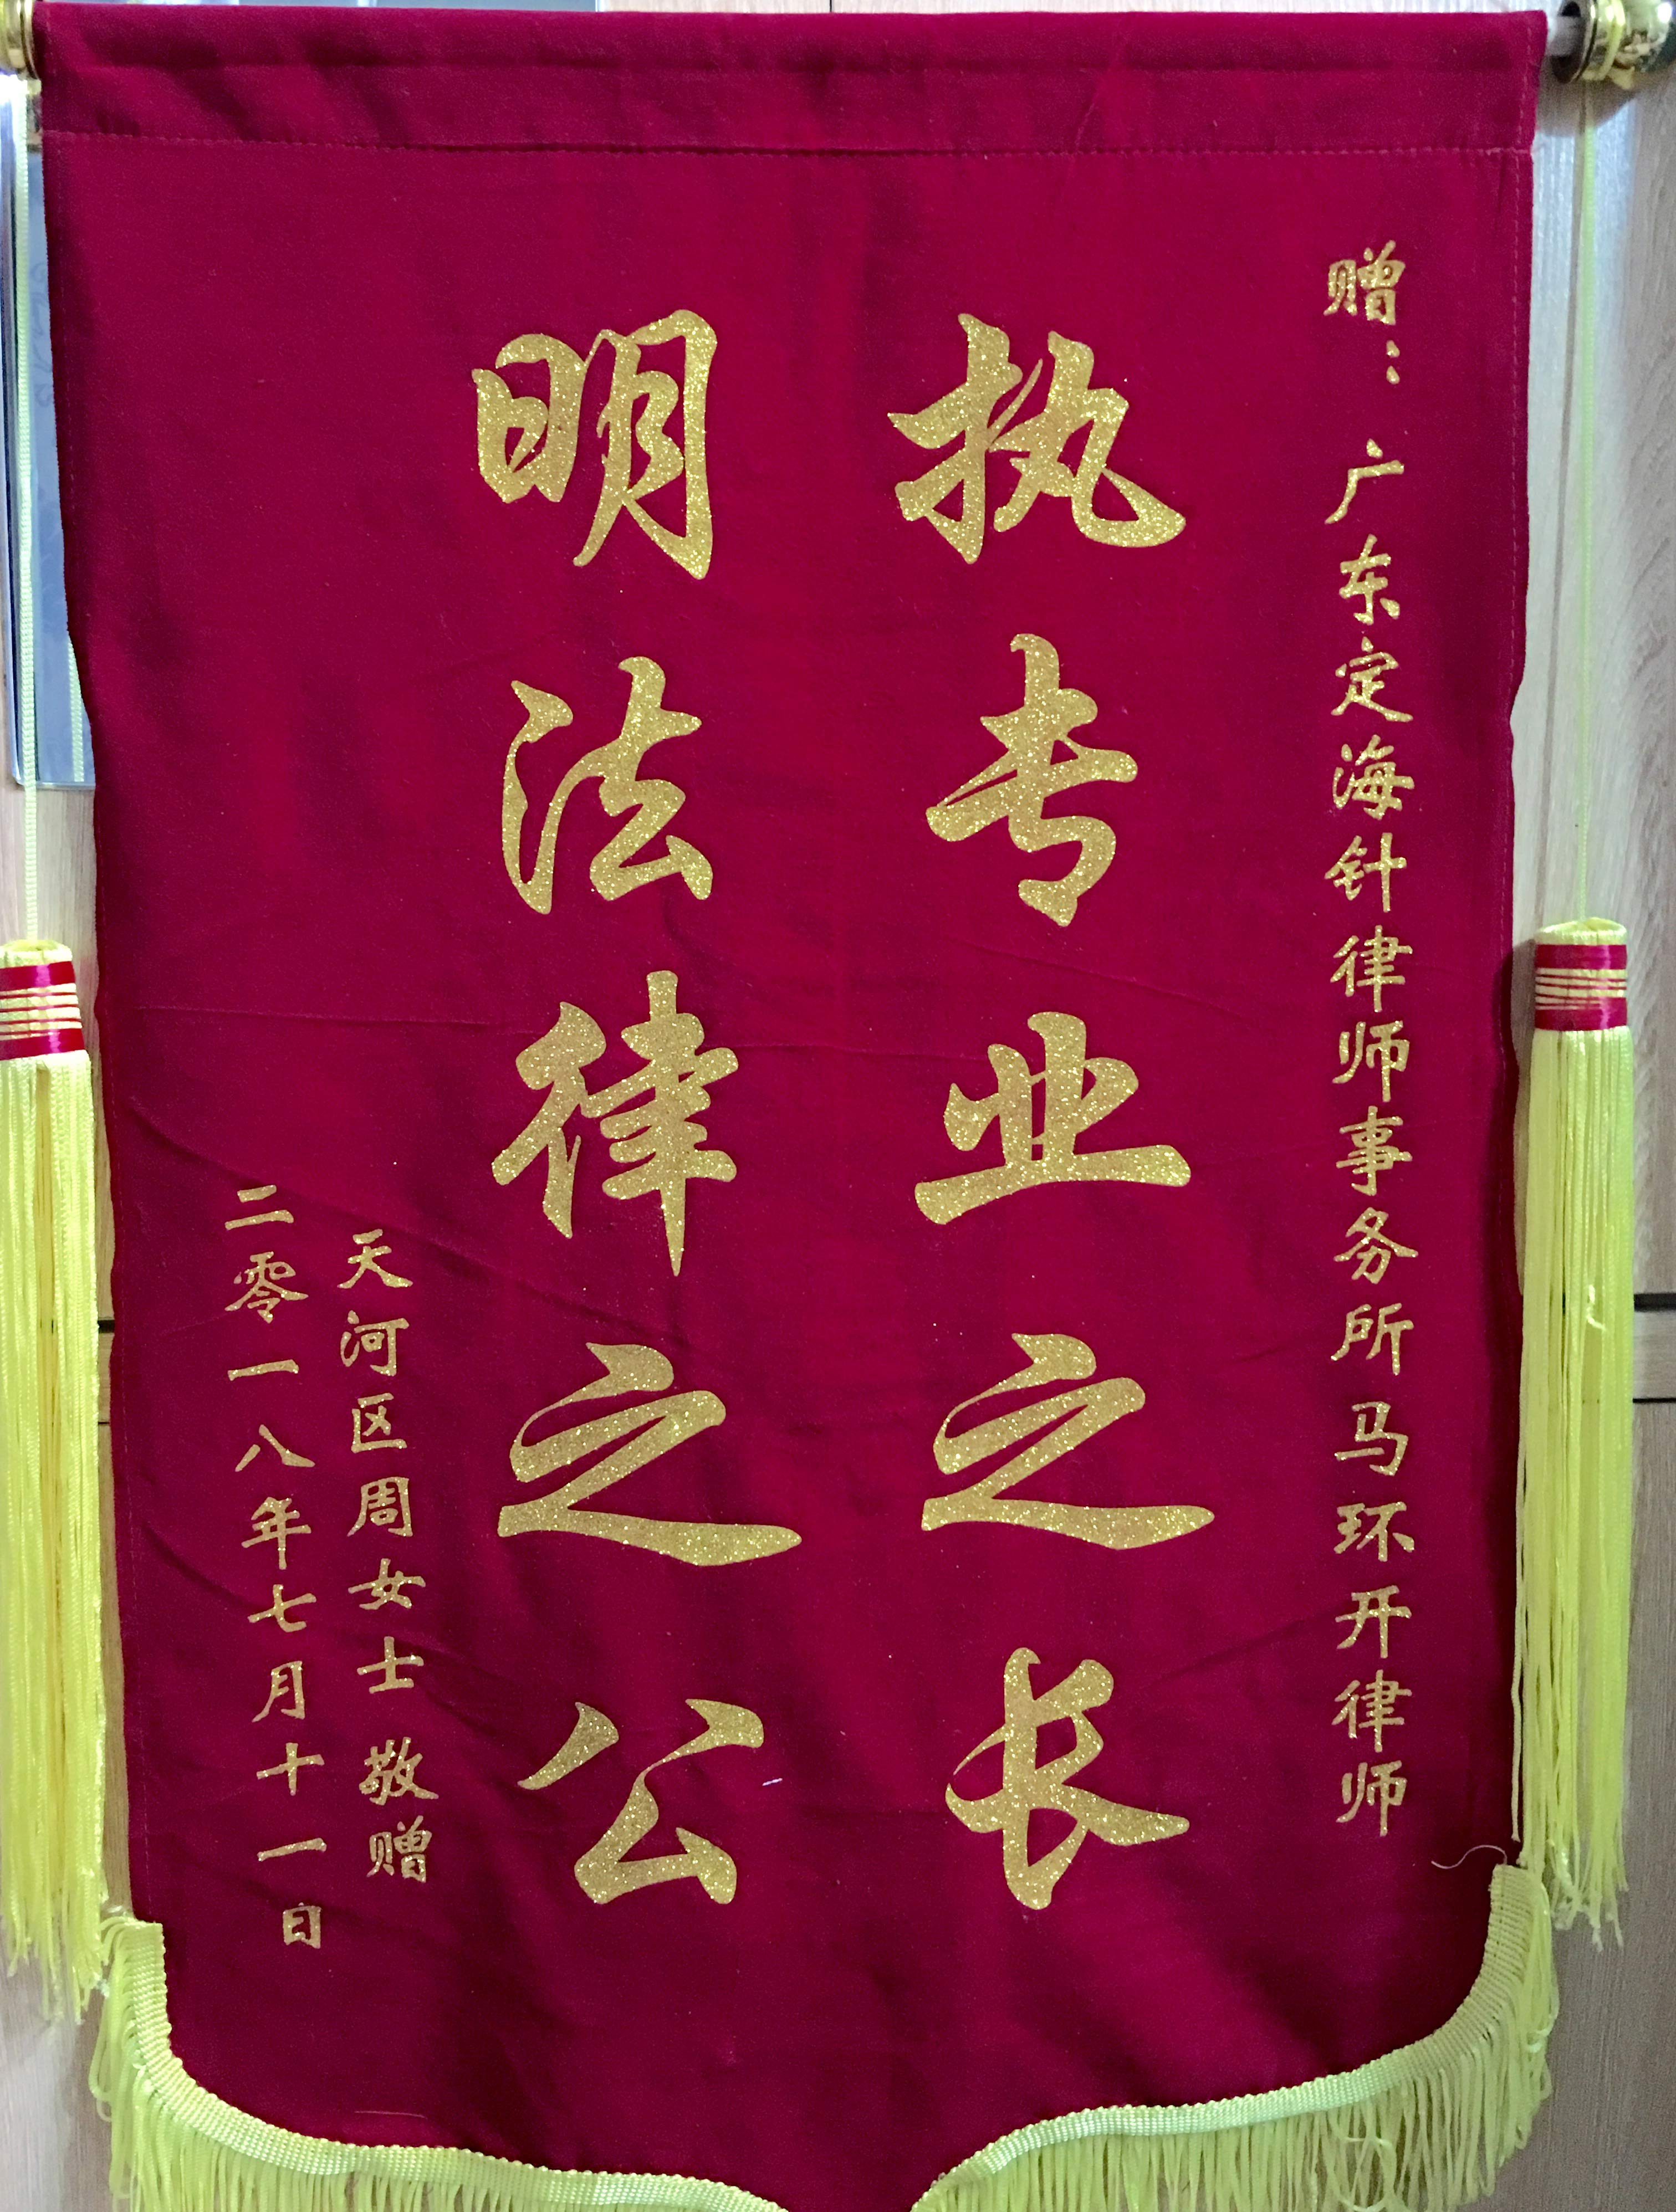 赠：广东定海针律师事务所马环开律师
执专业之长
明法律之公
天河区周女士 敬赠
二零一八年七月十一日